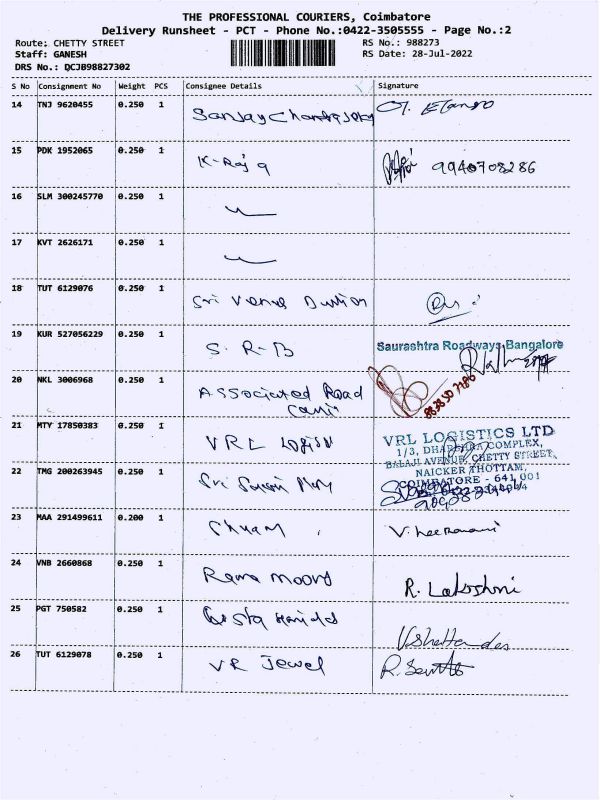 THE PROFESSIONAL COURIERS, Coimbatore
Delivery Runsheet - PCT - Phone No.:0422-3505555 - Page No.:2
Route: CHETTY STREET RS No.: 988273
Staff: GANESH RS Date: 28-Jul-2022
DRS No.: QCJB98827302
S No Consignment No Weight PCS Consignee Details Signature
14 TNJ 9620455 0.250 1 Sanjay
15 PDK 1952065 0.250 1 K-Raja 9940708286
16 SLM 300245770 0.250 1
17 KVT 2626171 0.250 1
18 TUT 6129076 0.250 1 Sri
19 KUR 527056229 0.250 1 S.R-B Saurashtra Roadways, Bangalore
20 NKL 3006968 0.250 1 Associated Road
21 MTY 17850383 0.250 1 VRL VRL LOGISTICS LTD
1/3, COMPLEX,
BALAJI AVENUE, CHETTY STREET,
NAICKER THOTTAM,
22 TMG 200263945 0.250 1 Sri COIMBATORE - 641 001
23 MAA 291499611 0.200 1
24 VNB 2660868 0.250 1 R. Lakshmi
25 PGT 750582 0.250 1
26 TUT 6129078 0.250 1 VR Jewel